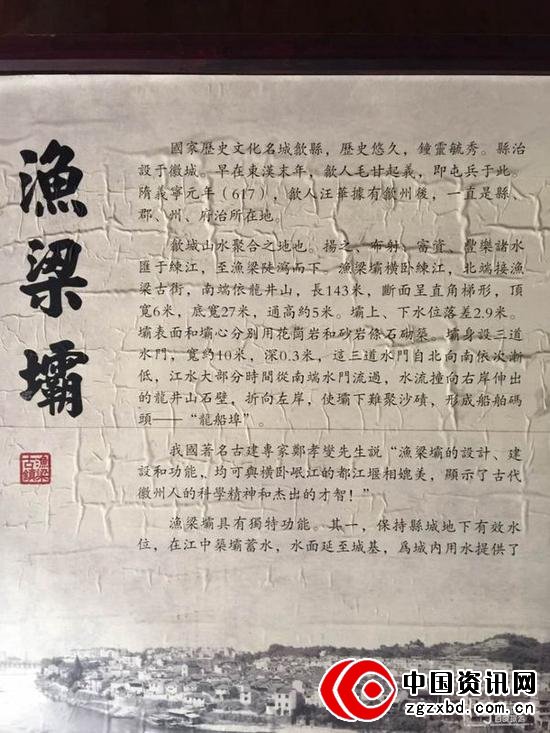 漁梁壩
國家歷史文化名城歙縣，歷史悠久，鐘靈毓秀。縣治
設于徽城。早在東漢末年，歙人毛甘起義，即屯兵于此。
隋義寧元年（617），歙人汪華據有歙州後，一直是縣、
郡、州、府治所在地。
歙城山水聚合之地也。揚之、布射、富資、豐樂諸水
匯于練江，至漁梁陡瀉而下。漁梁壩橫卧練江，北端接漁
梁古街，南端依龍井山，長143米，斷面呈直角梯形，頂
寬6米，底寬27米，通高約5米。壩上、下水位落差2.9米。
壩表面和壩心分别用花崗岩和砂岩條石砌築。壩身設三道
水門，寬約10米，深0.3米，這三道水門自北向南依次漸
低，江水大部分時間從南端水門流過，水流撞向右岸伸出
的龍井山石壁，折向左岸，使壩下難聚沙磧，形成船舶碼
頭——“龍船埠”。
我國著名古建專家鄭孝燮先生説“漁梁壩的設計、建
設和功能，均可與横卧岷江的都江堰相媲美，顯示了古代
徽州人的科學精神和杰出的才智！”
漁梁壩具有獨特功能。其一，保持縣城地下有效水
位，在江中築壩蓄水，水面延至城基，爲城内用水提供了
漁梁
古鎮
中国资讯网
zgzxbd.com.cn